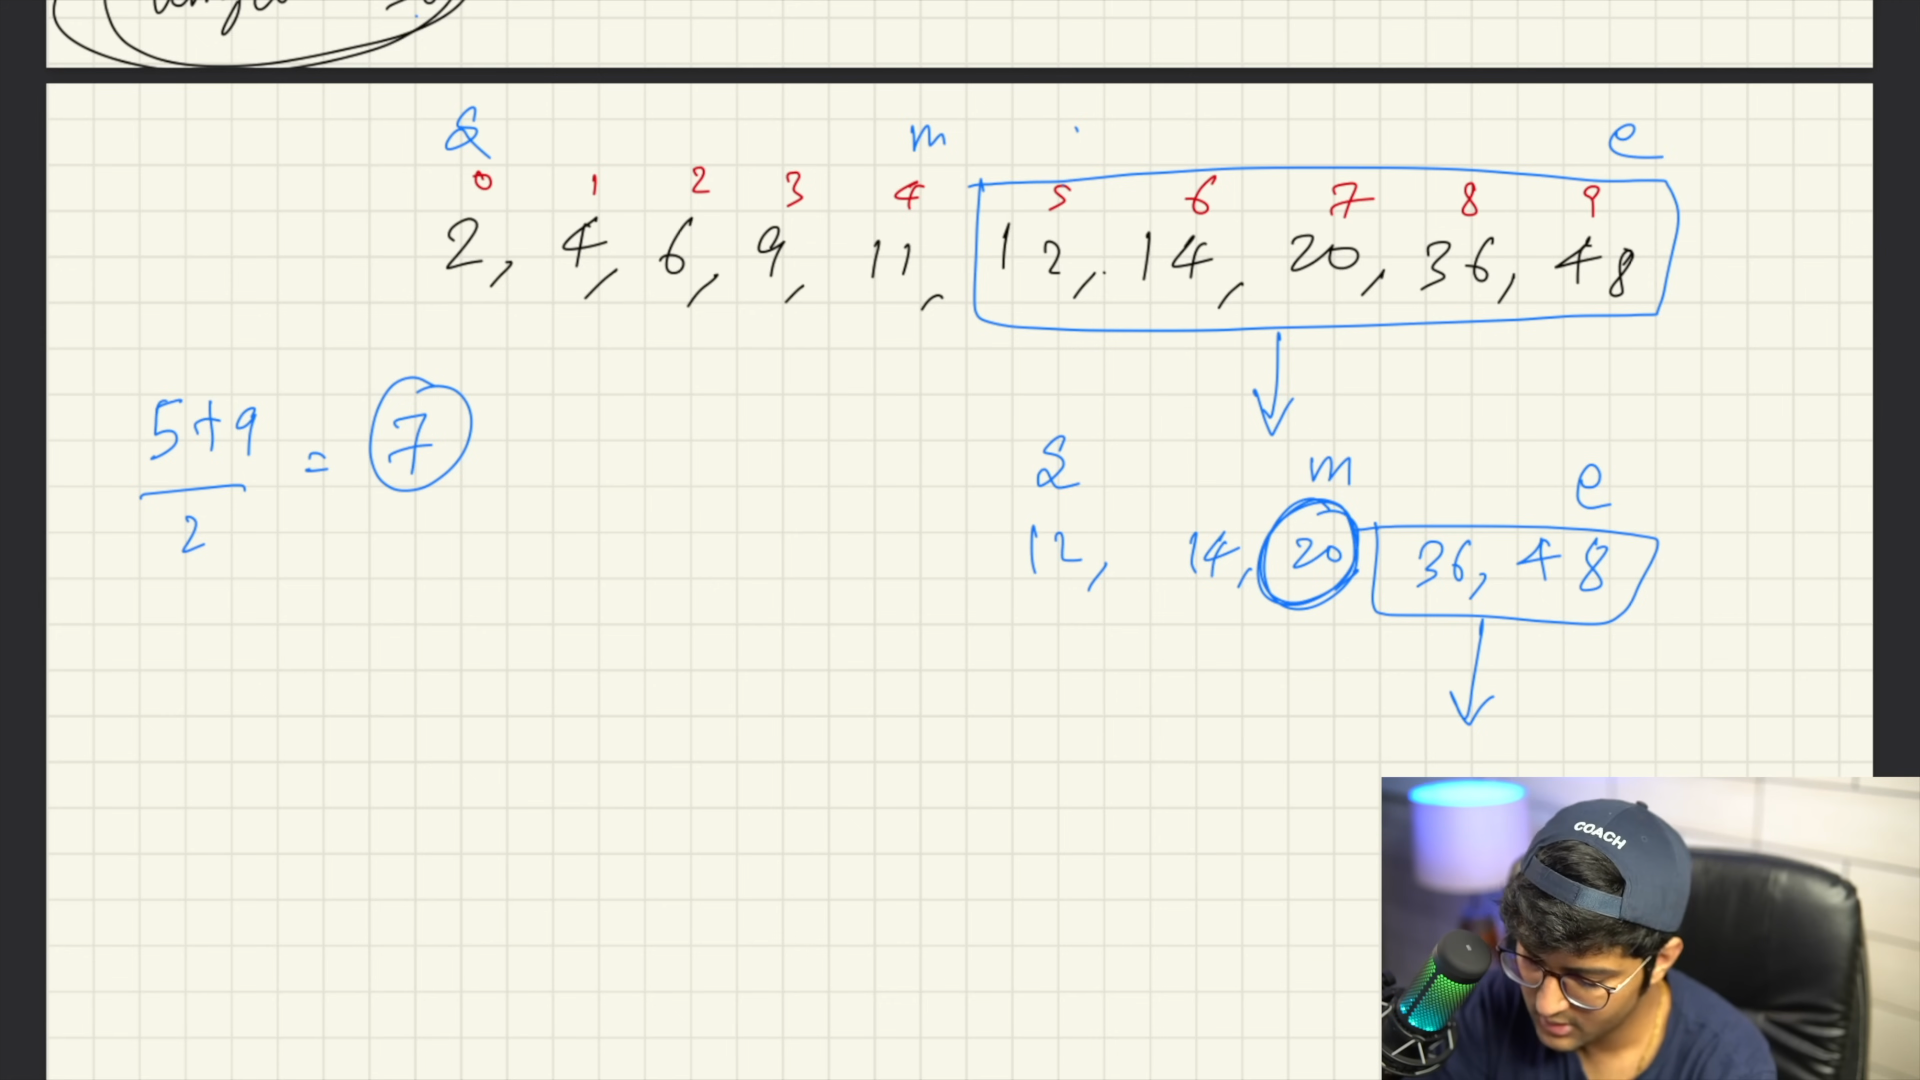 s m e
0 1 2 3 4 5 6 7 8 9
2, 4, 6, 9, 11, 12, 14, 20, 36, 48
5+9
2
= 7
s m e
12, 14, 20 36, 48
COACH